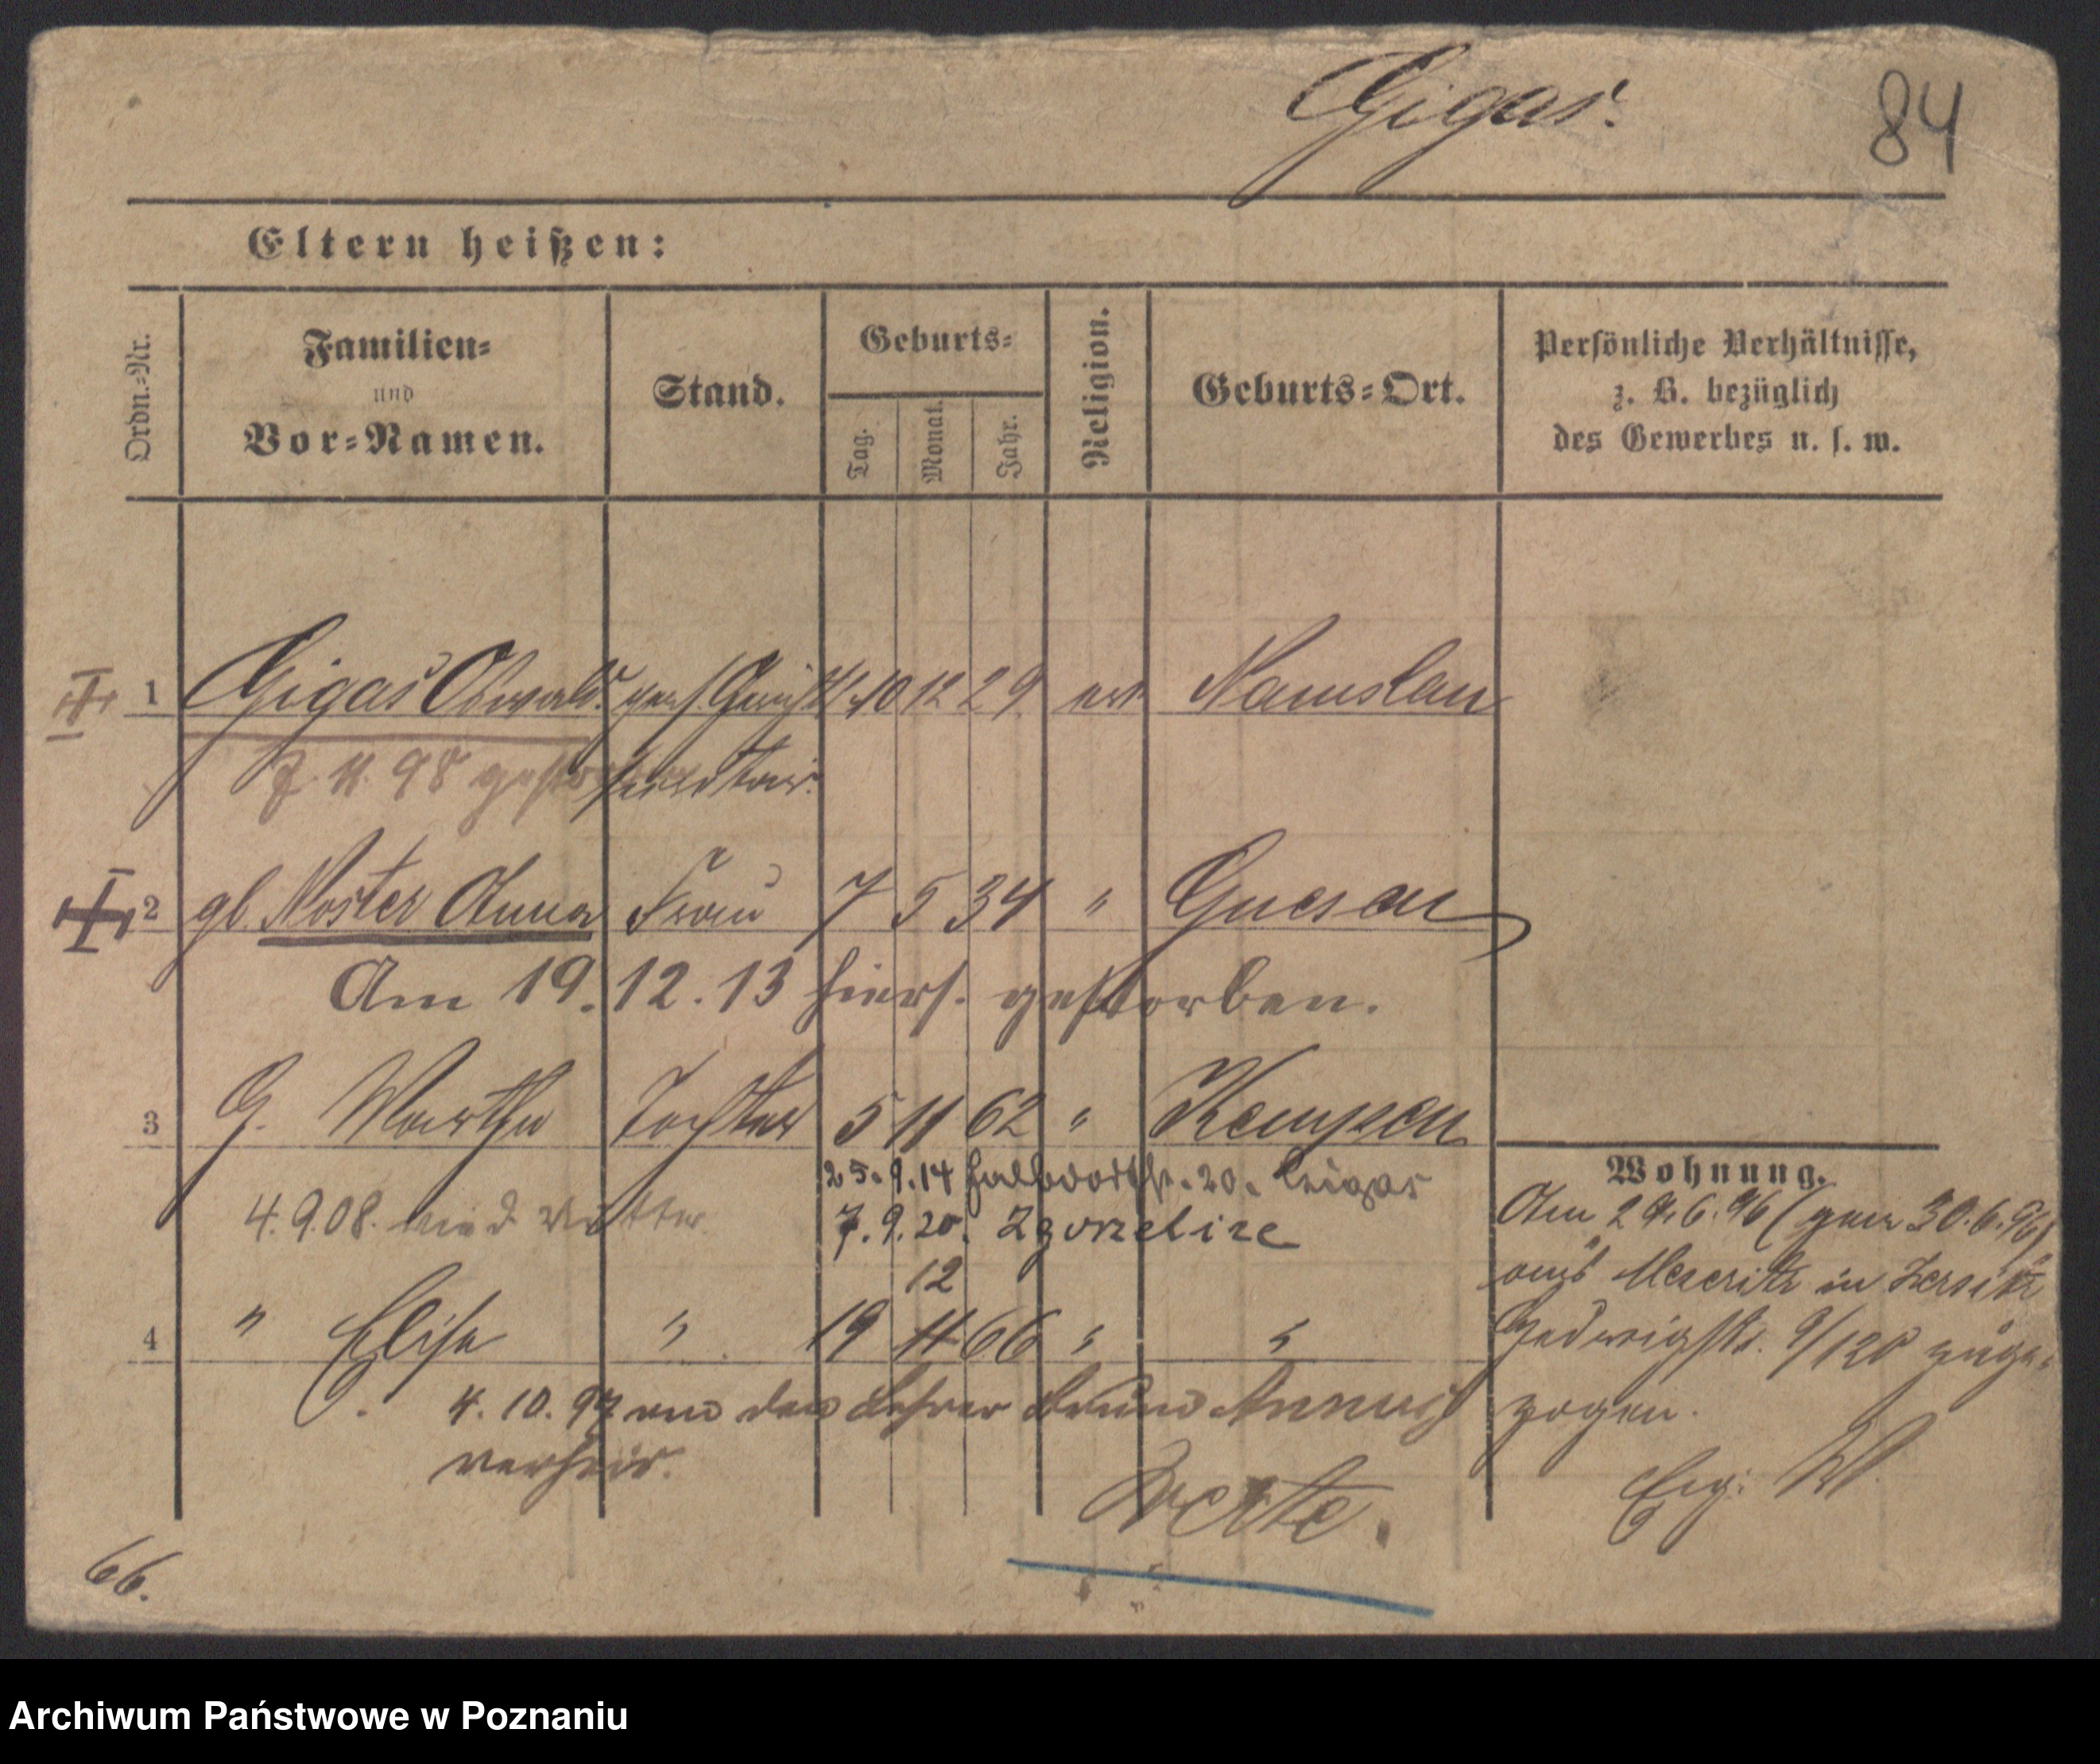 Gigas.
84
Eltern heißen:
Ordn.-Nr.
Familien-
und
Vor-Namen.
Stand.
Geburts-
Tag.
Monat.
Jahr.
Religion.
Geburts-Ort.
Persönliche Verhältnisse,
z. B. bezüglich
des Gewerbes u. s. w.
1 Gigas Oswald 10 12 29 Namslau
7. 11. 98 gestorben
2 gb. Noster Anna Frau 7 5 34 " Gnesen
Am 19. 12. 13 hiers. gestorben.
3 G. Martha Tochter 5 11 62 " Kempen
25. 9. 14 20. Gigas
4. 9. 08.
7. 9. 20. Zgorzelice
12
4 " Elise " 19 11 66 " "
4. 10. 97 Lehrer Bruno
verheir.
Verte.
Wohnung.
Am 29. 6. 96 (gem 30. 6. 96)
aus Meseritz in Jersitz
Hedwigstr. 9/120 zuge-
zogen.
66.
Archiwum Państwowe w Poznaniu